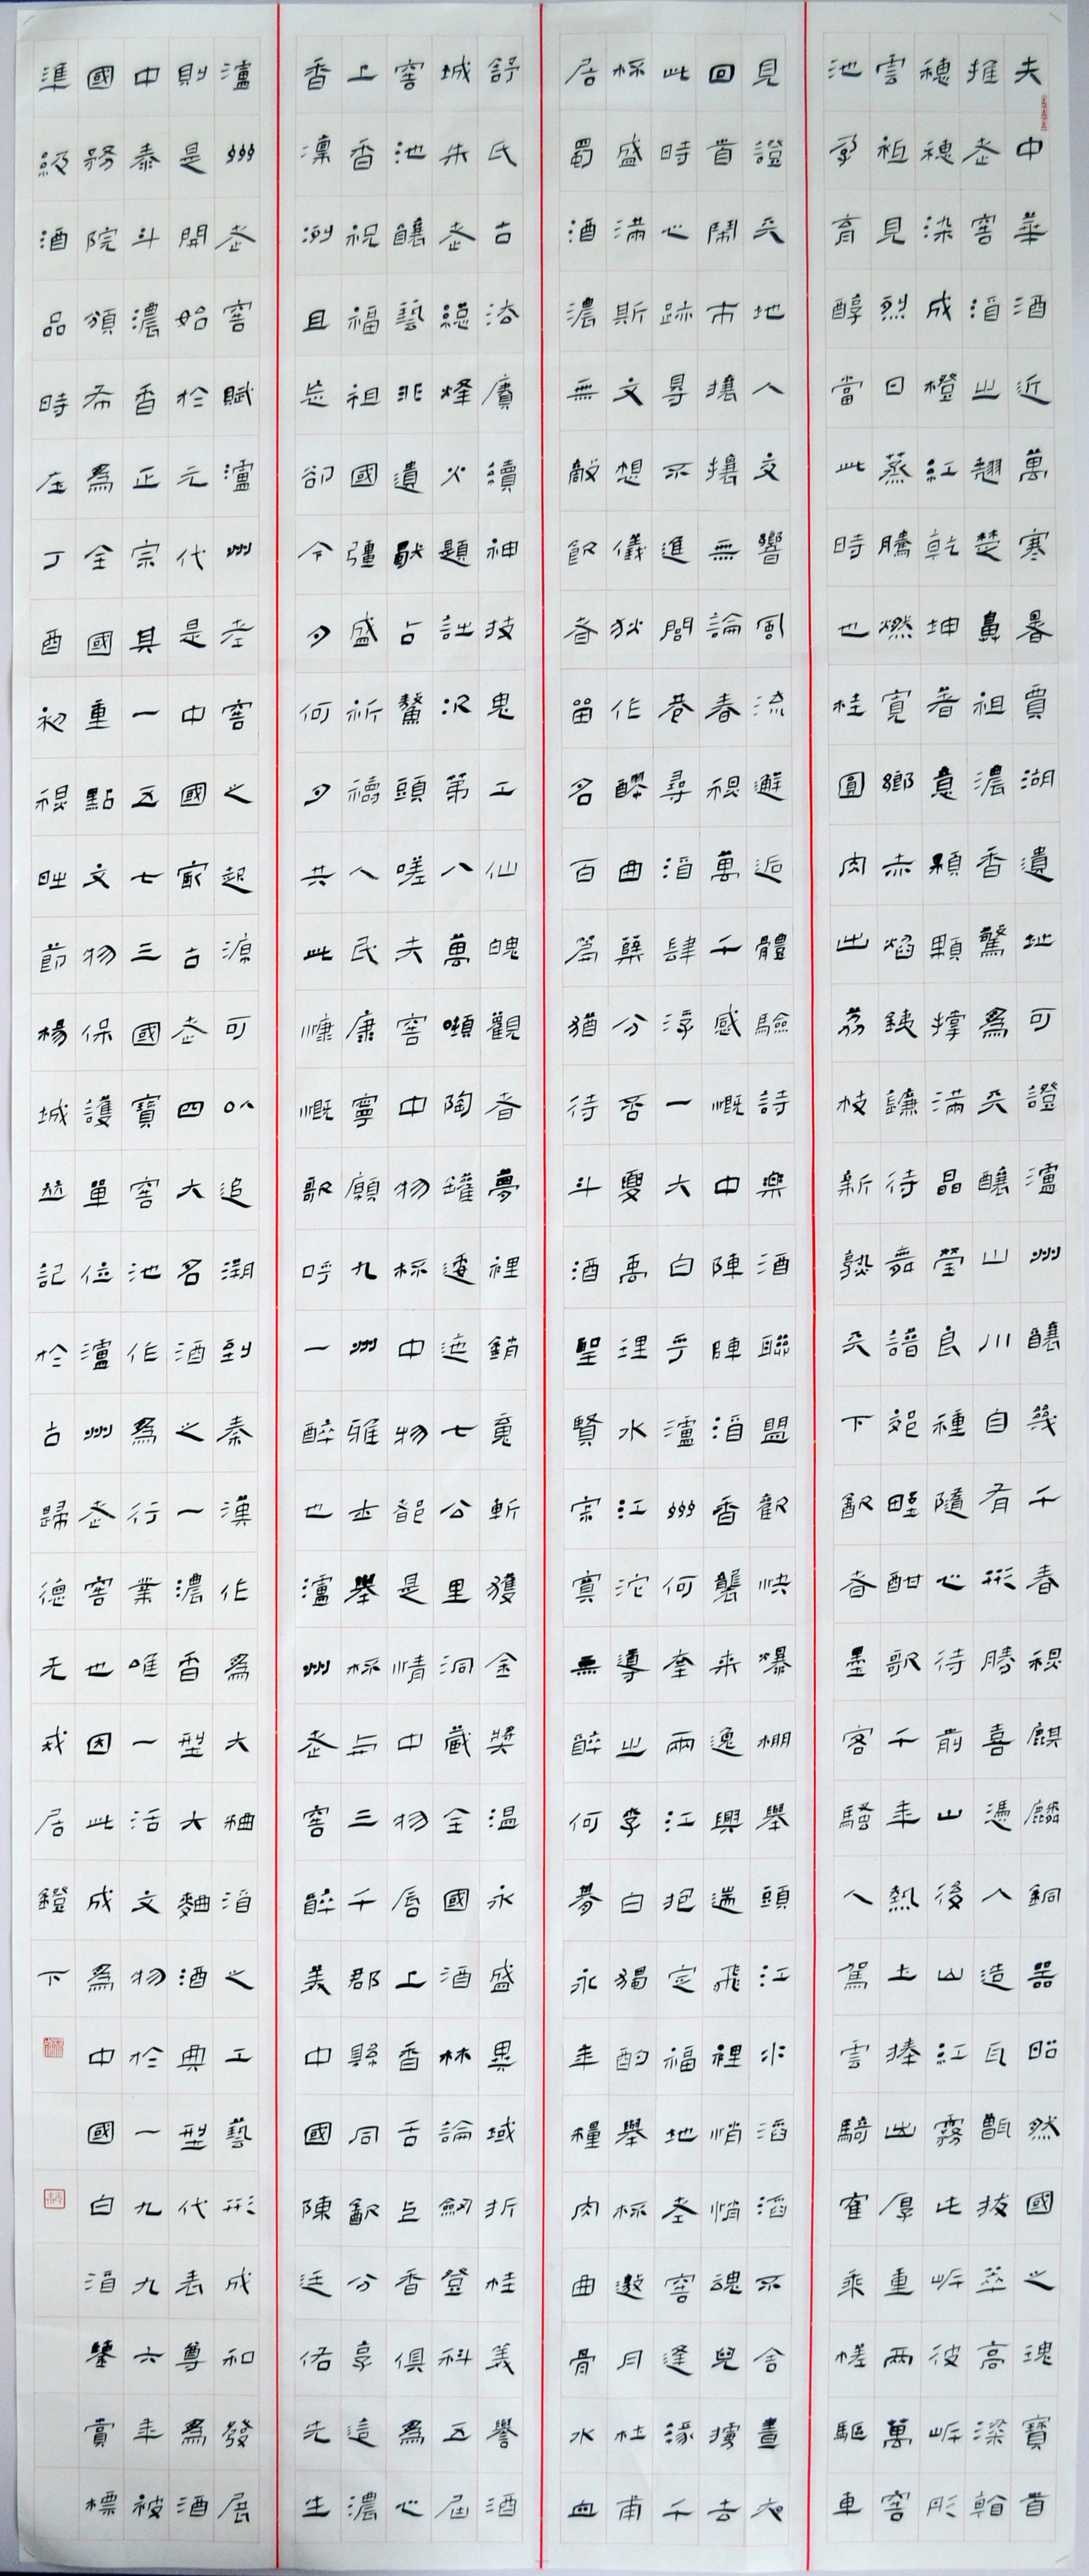 夫中華酒近萬寒暑賈湖遺址可證瀘州釀幾千春秋麒麟銅器昭然國之瑰寶首
推老窖酒之翹楚鼻祖濃香驚爲天釀山川自有形勝喜憑人造瓦甑拔萃高粱翰
穗穗染成橙紅乾坤著意顆顆撐滿晶瑩良種隨心待前山後山江霧此岸彼岸彤
雲祖見烈日蒸騰燃寬鄉赤焰銕鐮待舞譜郊野酣歌千年熱土捧出厚重兩萬窖
池孕育醇當此時也桂圓肉出荔枝新熟天下飲者墨客騷人駕雲騎乘槎驅車
見證天地人文響風流邂逅體驗詩樂酒聯盟歡快爆棚舉頭江水滔滔不舍晝夜
回首鬧市攘攘無論春秋萬千感慨中陣陣酒香襲來逸興遄飛裡悄悄魂兒擄去
此時心跡不進閭巷尋酒肆浮一大白乎瀘州何兩江定福地老窖逢緣千
杯盛滿斯文想儀狄作醪曲糵分禹理水江沱導出李白獨酌舉杯邀月杜甫
居蜀酒濃無敵飲者留名百篇猶待斗酒聖賢寂寞無醉何夢永年糧肉曲骨水血
舒氏古賡續神技鬼工仙魄觀者夢裡銷魂斬獲金獎溫永盛異域折桂美譽酒
城朱老總烽火題註況第八萬噸陶罐逶迤七公里洞藏全國酒林論劍登科五屆
窖池釀藝非遺猷占鰲頭嗟夫窖中物杯中物都是情中物唇上香舌上香俱爲心
上香祝福祖國彊盛祈禱人民康寧願九州雅士舉杯與三千郡縣同飲分享這濃
香凜冽且卻今夕何夕共此慷慨歌呼一醉也瀘州老窖醉美中國陳廷佑先生
瀘州老窖賦瀘州老窖之起源可以追溯到秦漢作爲大麯酒之工藝形成和發展
則是開始於元代是中國最古老四大名酒之一濃香型大麯酒典型代表尊爲酒
中泰斗濃香正宗其一五七三國寶窖池作爲行業唯一活文物於一九九六年被
國務院頒布爲全國重點文物保護單位瀘州老窖也因此成爲中國白酒鑒賞標
準級酒品時在丁酉初秋節楊城記於古歸德无戒居鐙下